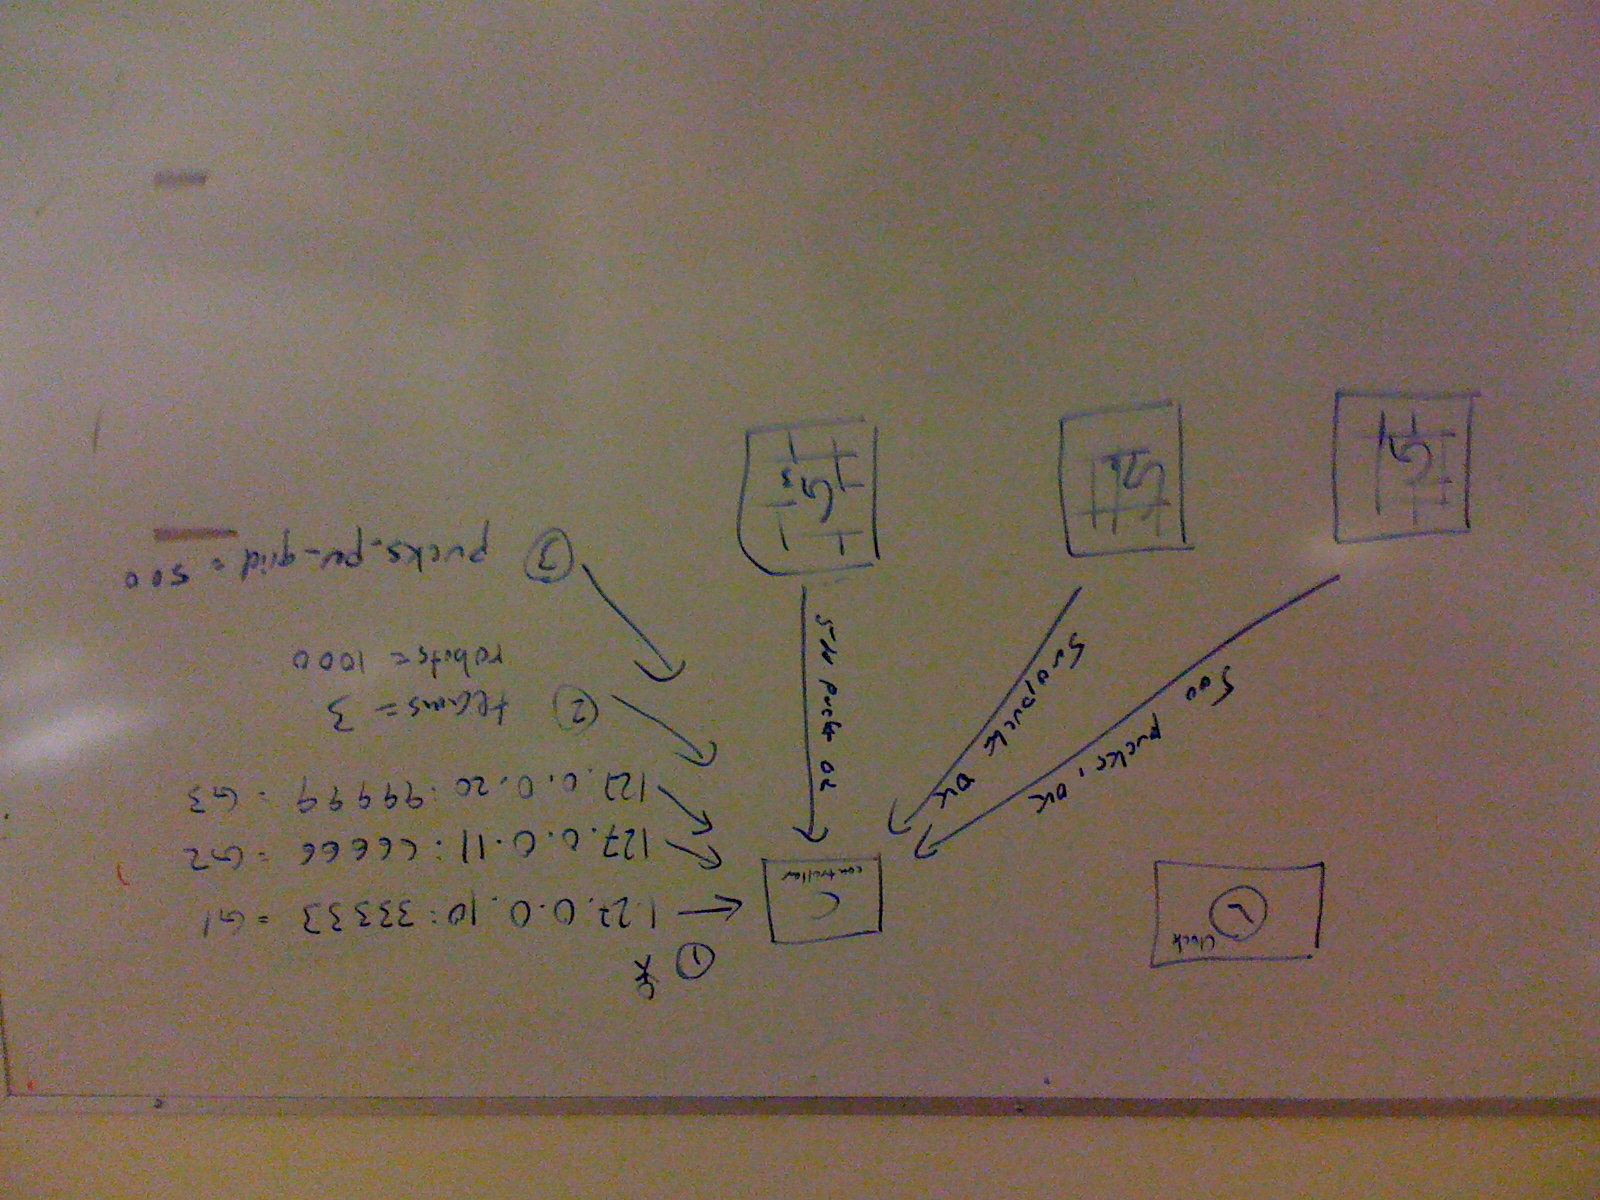 Clock
C
controller
①
127.0.0.10:33333 = G1
127.0.0.11:66666 = G2
127.0.0.20:99999 = G3
② teams= 3
robots= 1000
③ pucks_per_grid = 500
500 pucks, OK
500 pucks OK
500 pucks OK
G1
G2
G3